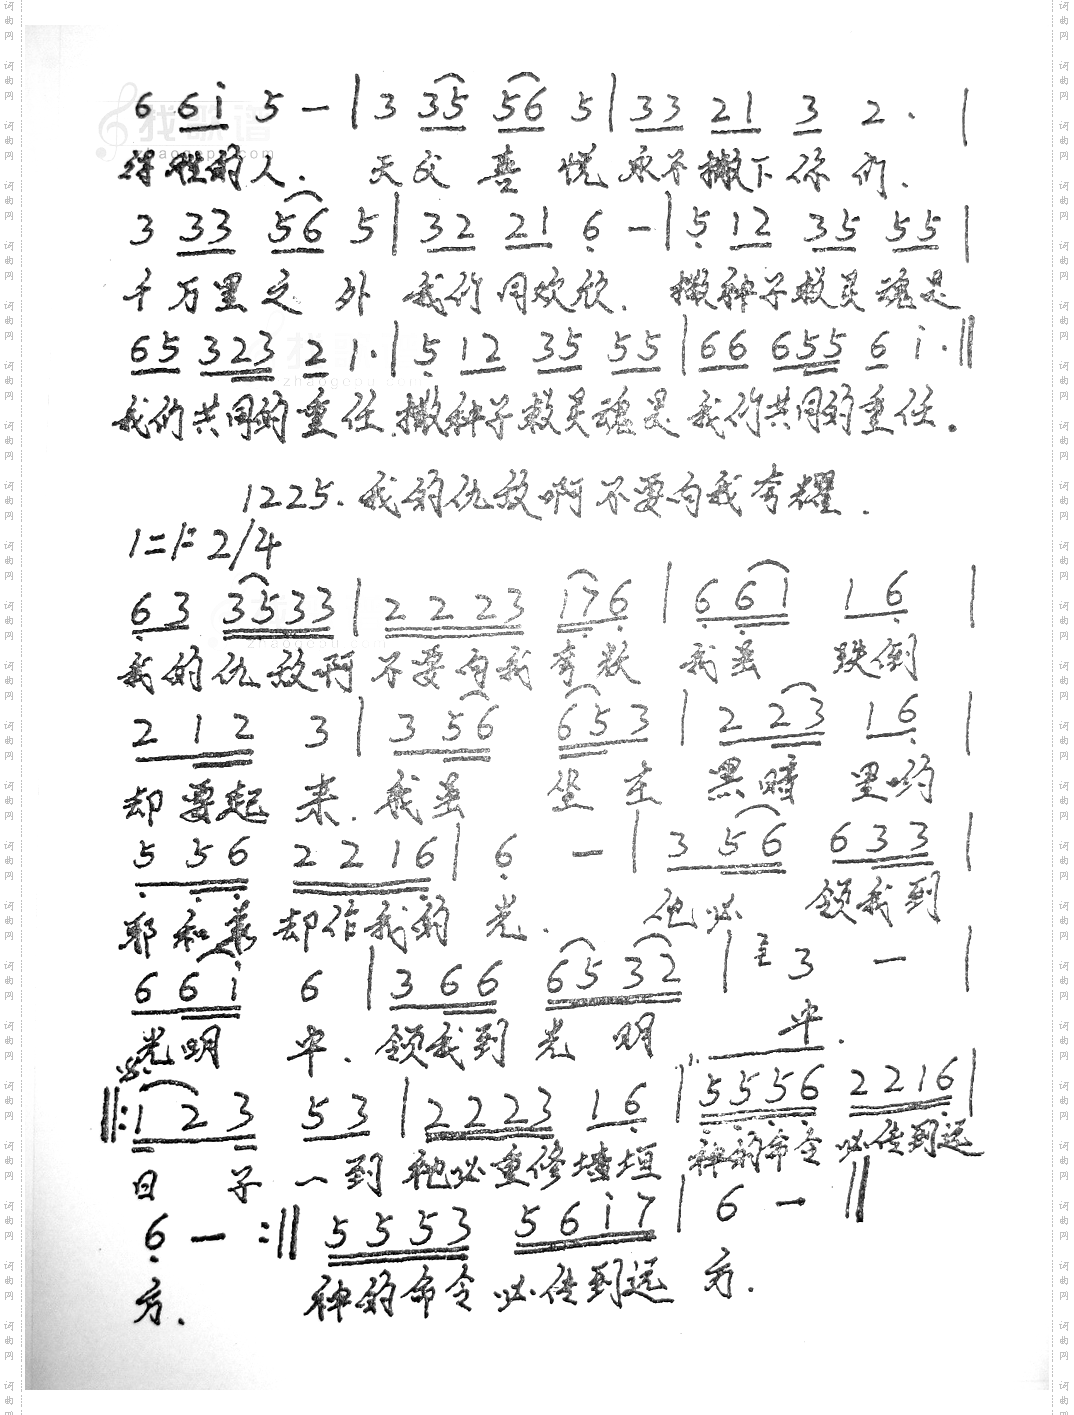 6 6i 5 — | 3 35 56 5 | 33 21 3 2 . |
得胜的人. 天父喜悦永不撇下你们.
3 33 56 5 | 32 21 6 — | 5 12 35 55 |
千万里之外我们同欢欣. 撒种子救灵魂是
65 323 2 1 . | 5 12 35 55 | 66 655 6 i . ‖
我们共同的重任.撒种子救灵魂是我们共同的重任.
1225.我的仇敌啊不要向我夸耀.
1=F 2/4
63 3533 | 2223 176 | 661 16 |
我的仇敌啊不要向我夸耀 我虽 跌倒
212 3 | 356 653 | 223 16 |
却要起来.我虽 坐在 黑暗里哟
556 2216 | 6 — | 356 633 |
耶和华却作我的光. 他必 领我到
66i 6 | 366 6532 | 3 — |
光明 中.领我到光明 中.
‖: 123 53 | 2223 16 | 5556 2216 |
日子一到祂必重修墙垣 神的命令必传到远
6 — :‖ 5553 56i7 | 6 — ‖
方. 神的命令必传到远方.
找歌谱
zhaogepu.com
词曲网